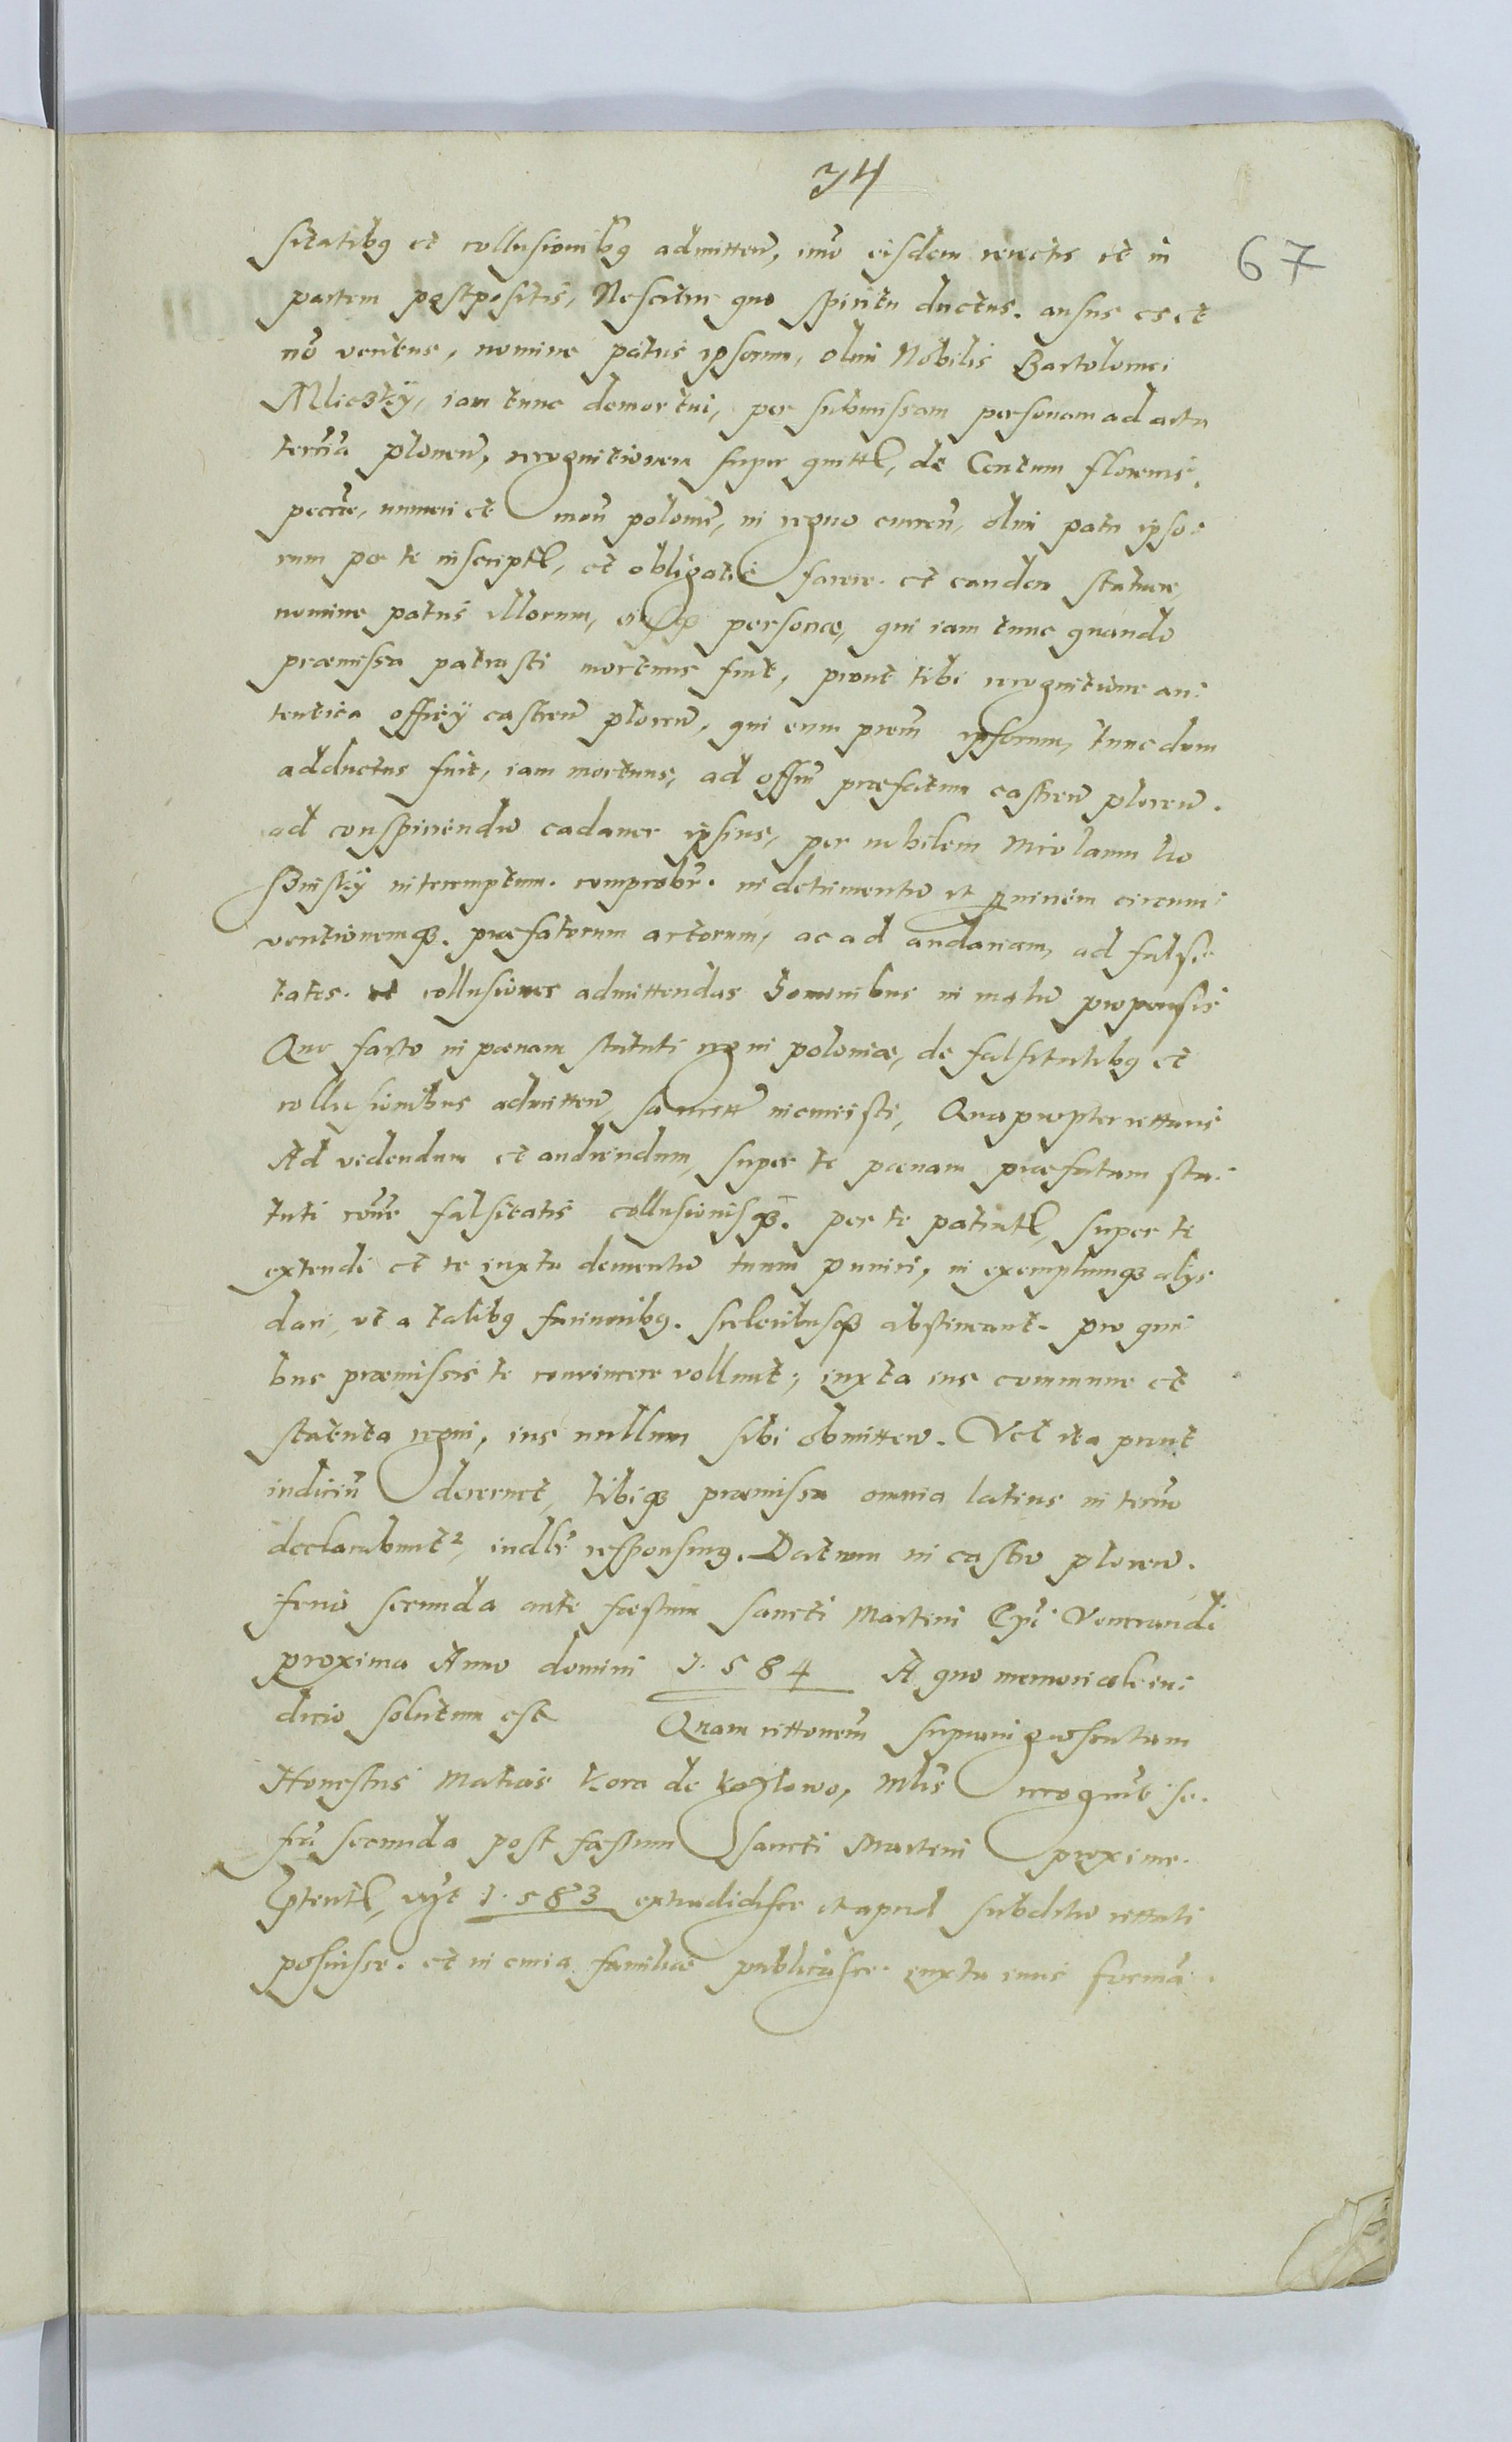 74
67
sitatibq et collusionibq admitten, imo eisdem reiectis et in
partem postpositis, Nescitur quo spiritu ductus. ausus es et
no veritus, nomine patris ipsorum, olim Nobilis Bartolomei
Mliczky, iam tunc demortui, per submissam personam ad acta
plocen, recognitionem super quitt, de Centum florenis.
pecun, numeri et mon polonic, in regno curren, olim patri ipso:
rum per te inscript, et obligatis facere. et eandem statuere,
nomine patris illorum, personæ, qui iam tunc quando
præmissa patrasti mortuus fuit, prout tibi recognitione au:
tentica officy castren plocen, qui eum prem ipsorum, tunc dum
adductus fuit, iam mortuus, ad offim præfatum castren plocen.
ad conspiciendu cadauer ipsius, per nobilem Nicolaum
interemptum. comprobr. in detrimentu et circum:
uentionemq. præfatorum actorum, ac ad audaciam, ad falsi:
tates. et collusiones admittendas hominibus in malu propensis
Quo facto in pœnam statuti regni poloniæ, de falsitatibq et
collusionibus admitten, sancitt incurristi, Quapropter cittaris
Ad videndum et audiendum, super te pœnam præfatam sta:
tuti rone falsitatis collusionisq. per te patrat, super te
extendi et te iuxta dementu tuum puniri, in exemplumq alys
dari, vt a talibq facinoribq. sceleribusq abstineant. pro qui:
bus præmissis te conuincere vollunt, iuxta ius commune et
statuta regni, ius nullum sibi obmitten. Vel ita prout
iudiciu decernet, tibiq præmissa omnia latius in termo
declarabunt, iudlr responsurq. Datum in castro plocen.
feria secunda ante fæstum sancti Martini Epi Venerandi
proxima Anno domini 1.584 A quo memoriale iu:
dicio solutum est Quam cittonem suprai gressatam
Honestus Matias Kora de Kozlowo, Mlis recognuit se.
fia secunda post fæstum sancti Martini proxime.
pterit, 1.583 extradidisse et apud subditu cittati
posuisse. et in curia familiæ publicasse. iuxta iuris forma.